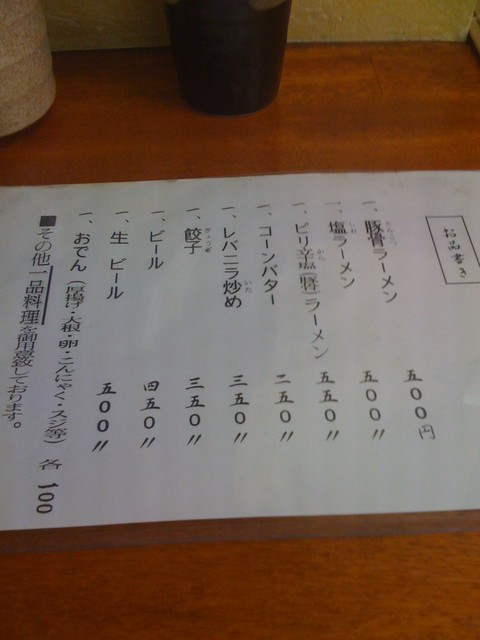 お品書き
一、豚骨ラーメン 五〇〇円
とんこつ
一、塩ラーメン 五〇〇〃
しお
一、ピリ辛塩(豚)ラーメン 五五〇〃
から
一、コーンバター 二五〇〃
一、レバニラ炒め 三五〇〃
いた
一、餃子 三五〇〃
ぎょうざ
一、ビール 四五〇〃
一、生 ビール 五〇〇〃
一、おでん (厚揚げ・大根・卵・こんにゃく・スジ等) 各 100
■その他一品料理を御用意致しております。